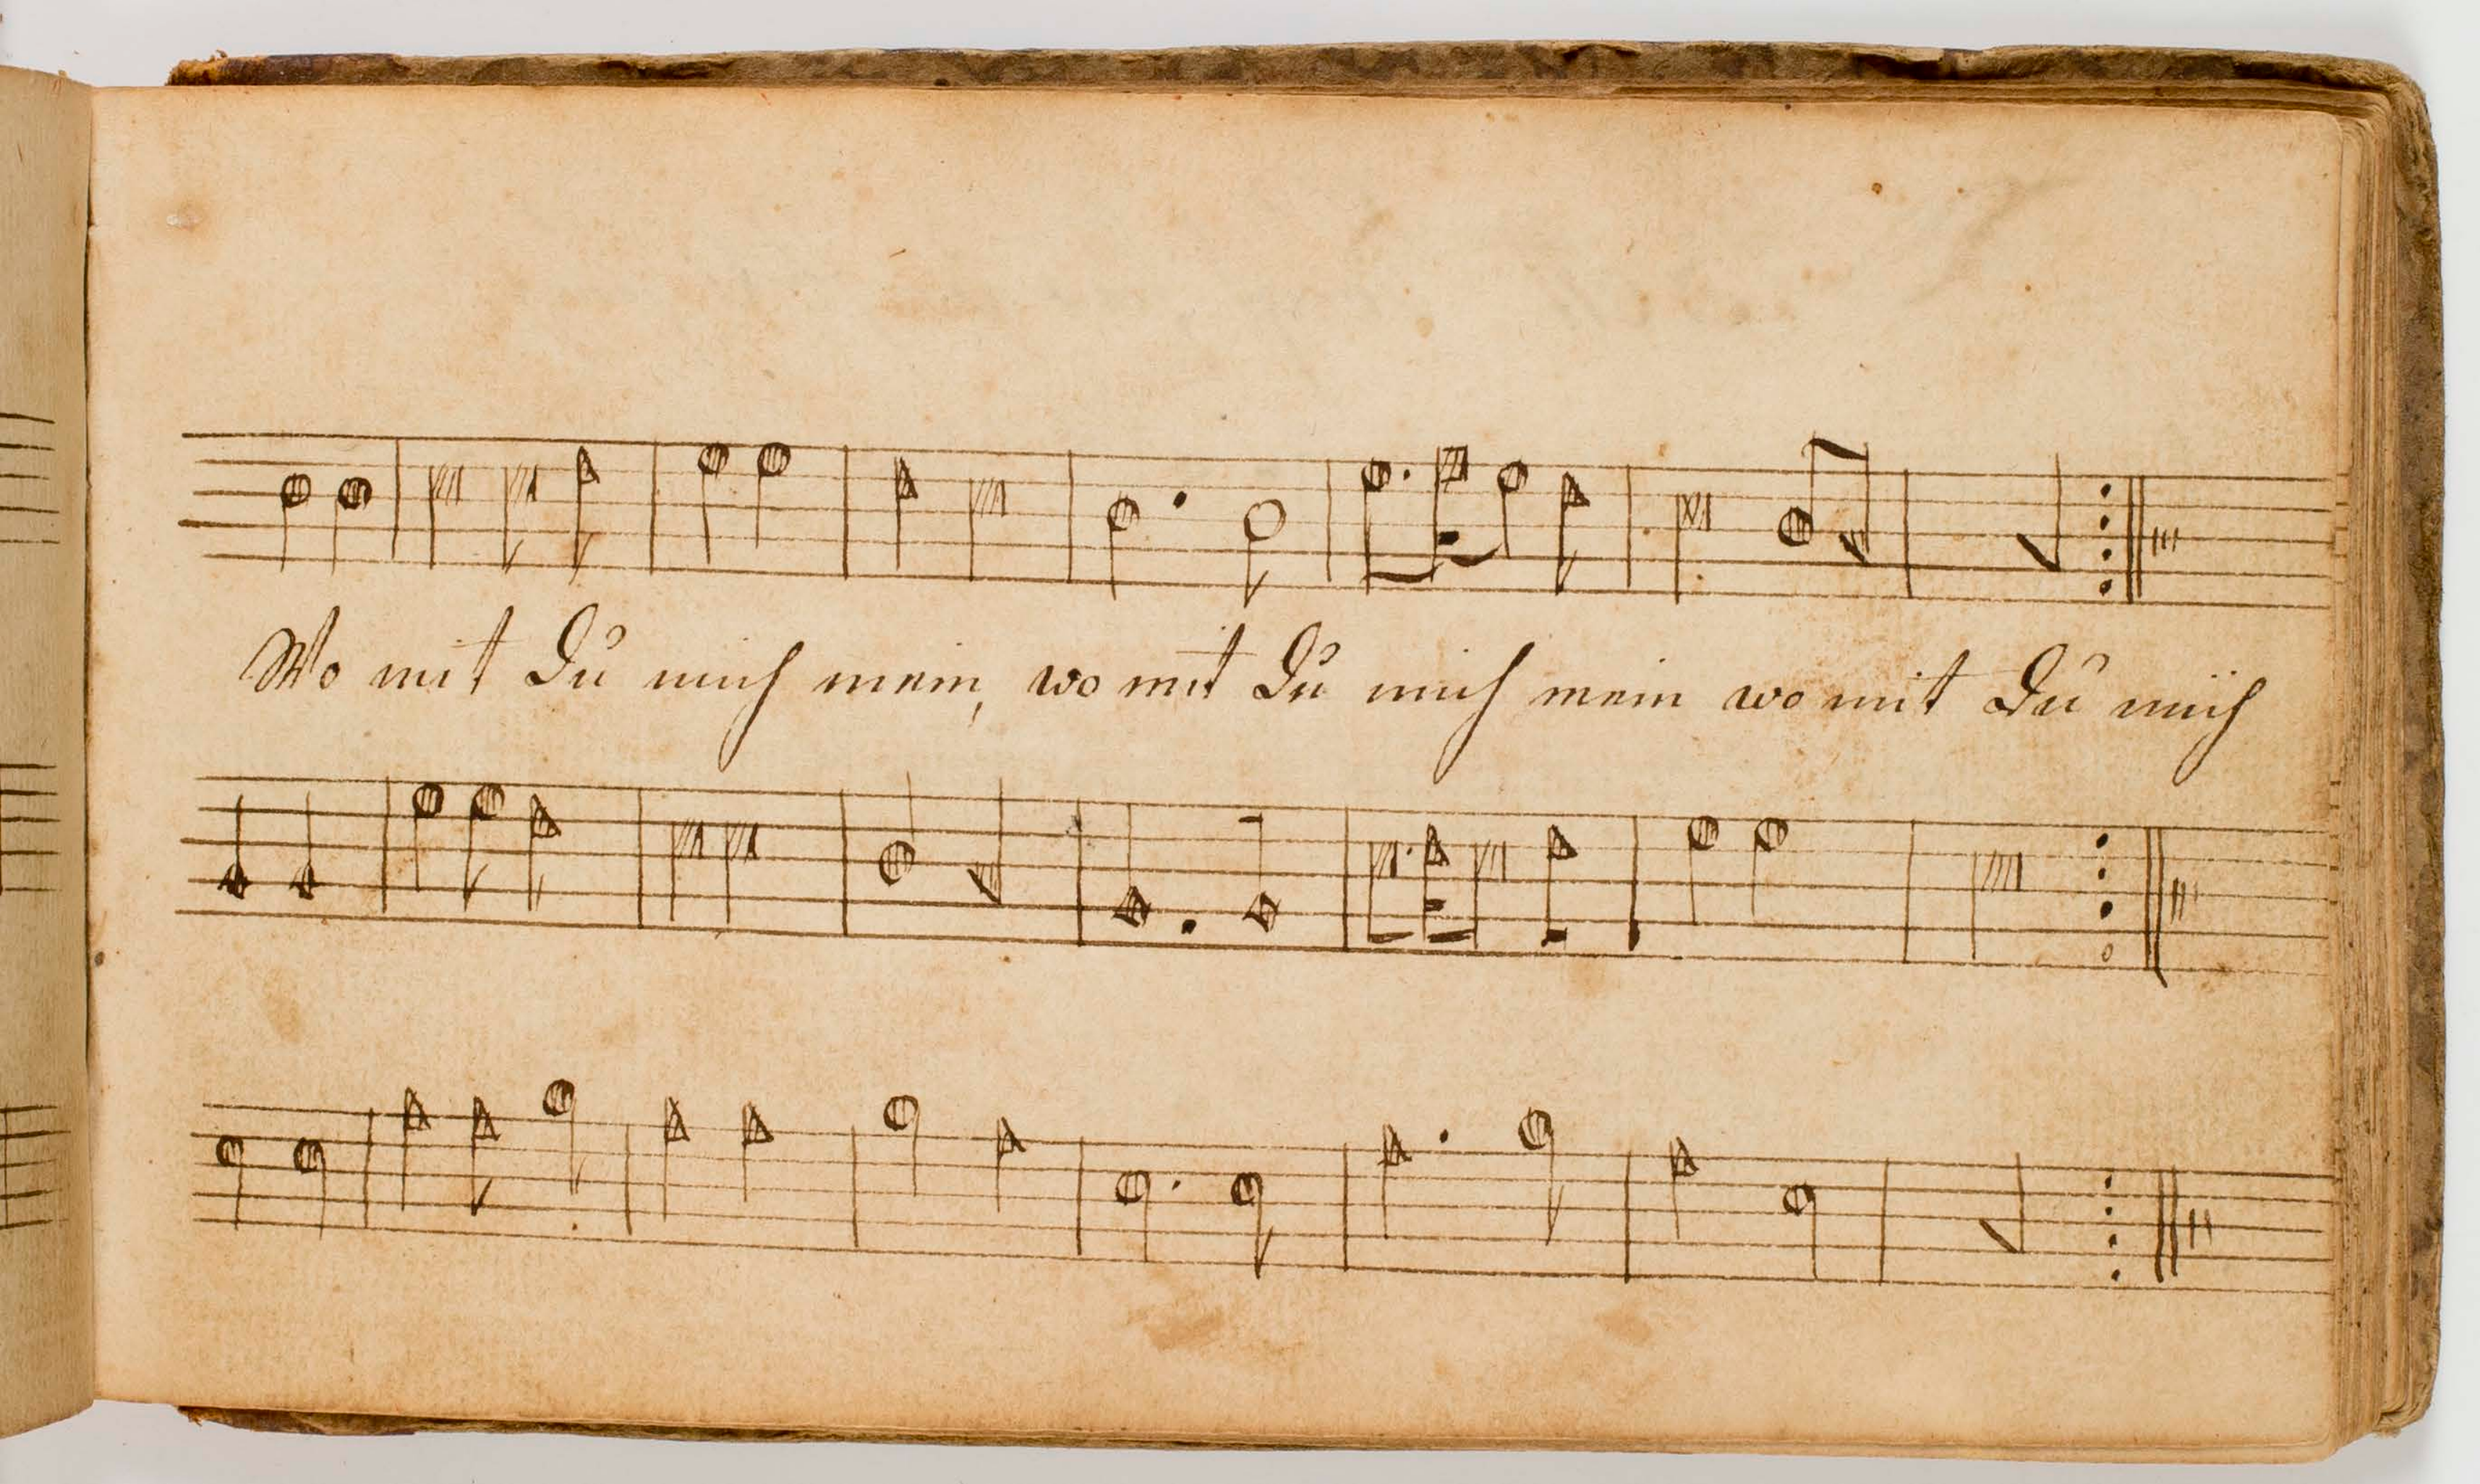 Wo mit Du mich mein, wo mit Du mich mein wo mit Du mich